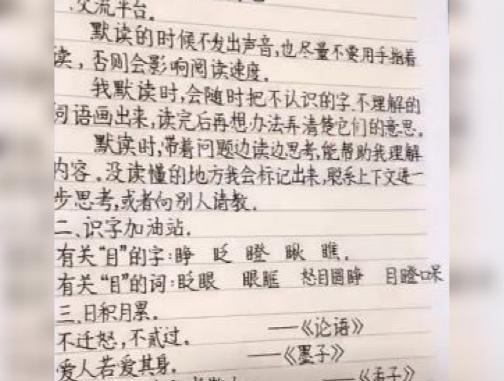 、交流平台。
默读的时候不发出声音,也尽量不要用手指着
读,否则会影响阅读速度。
我默读时,会随时把不认识的字、不理解的
词语画出来,读完后再想办法弄清楚它们的意思。
默读时,带着问题边读边思考,能帮助我理解
内容。没读懂的地方我会标记出来,联系上下文进一
步思考,或者向别人请教。
二、识字加油站.
有关“目”的字:睁 眨 瞪 瞅 瞧.
有关“目”的词:眨眼 眼眶 怒目圆睁 目瞪口呆
三.日积月累.
不迁怒,不贰过。 ——《论语》
爱人若爱其身. ——《墨子》
——《孟子》